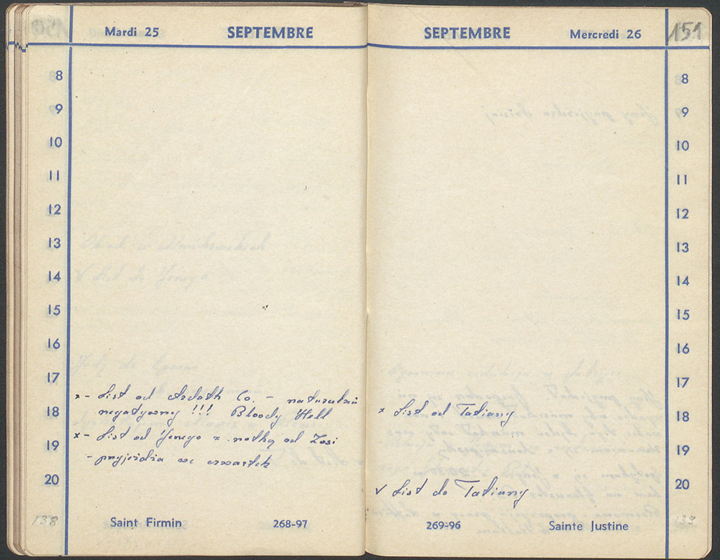 Mardi 25 SEPTEMBRE
8
9
10
11
12
13
14
15
16
17
18
19
20
x- List od Ardath Co. – naturalnie
negatywny !!! Bloody Hell
x- List od Jerzego z notką od Zosi
- przyjeżdża we czwartek
138
Saint Firmin 268-97
SEPTEMBRE Mercredi 26 151
8
9
10
11
12
13
14
15
16
17
18
19
20
x List od Tatiany
v List do Tatiany
269-96 Sainte Justine